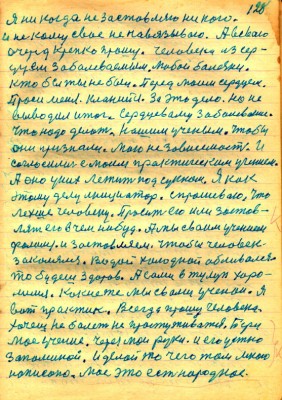 128
Я никогда не заставляю никого.
И никому свое не навязываю. А всегда
очередь крепко прошу. Человека из сер-
цем заболеваемым. Любой болезни.
Кто бы ты не был. Перед моим сердцем.
Проси меня. Кланейся. За это дело. Но не
выводил итог. Сердцевому заболеванию.
Что надо делать. Нашим ученым. Чтобы
они признали. Мою независимость. И
согласились с моим практическим учением.
А оно у них летит под сукном. Я как
этому делу инициатор. Спрашиваю, что
легше человеку. Просить его или застав-
лять его в чем нибудь. А мы своим учением
и заставляем. Чтобы человек
закалялся. Водой холодной обливался
то будеш здоров. А сами в тулуп
Какие те мы свами ученые. Я
вот практик. Всегда прошу человека.
Хочеш не болеть не простуживатся. Бери
мое учение. Через мои руки. И его устно
запоминай. И делай то чего там мною
написано. Мое это есть народное.